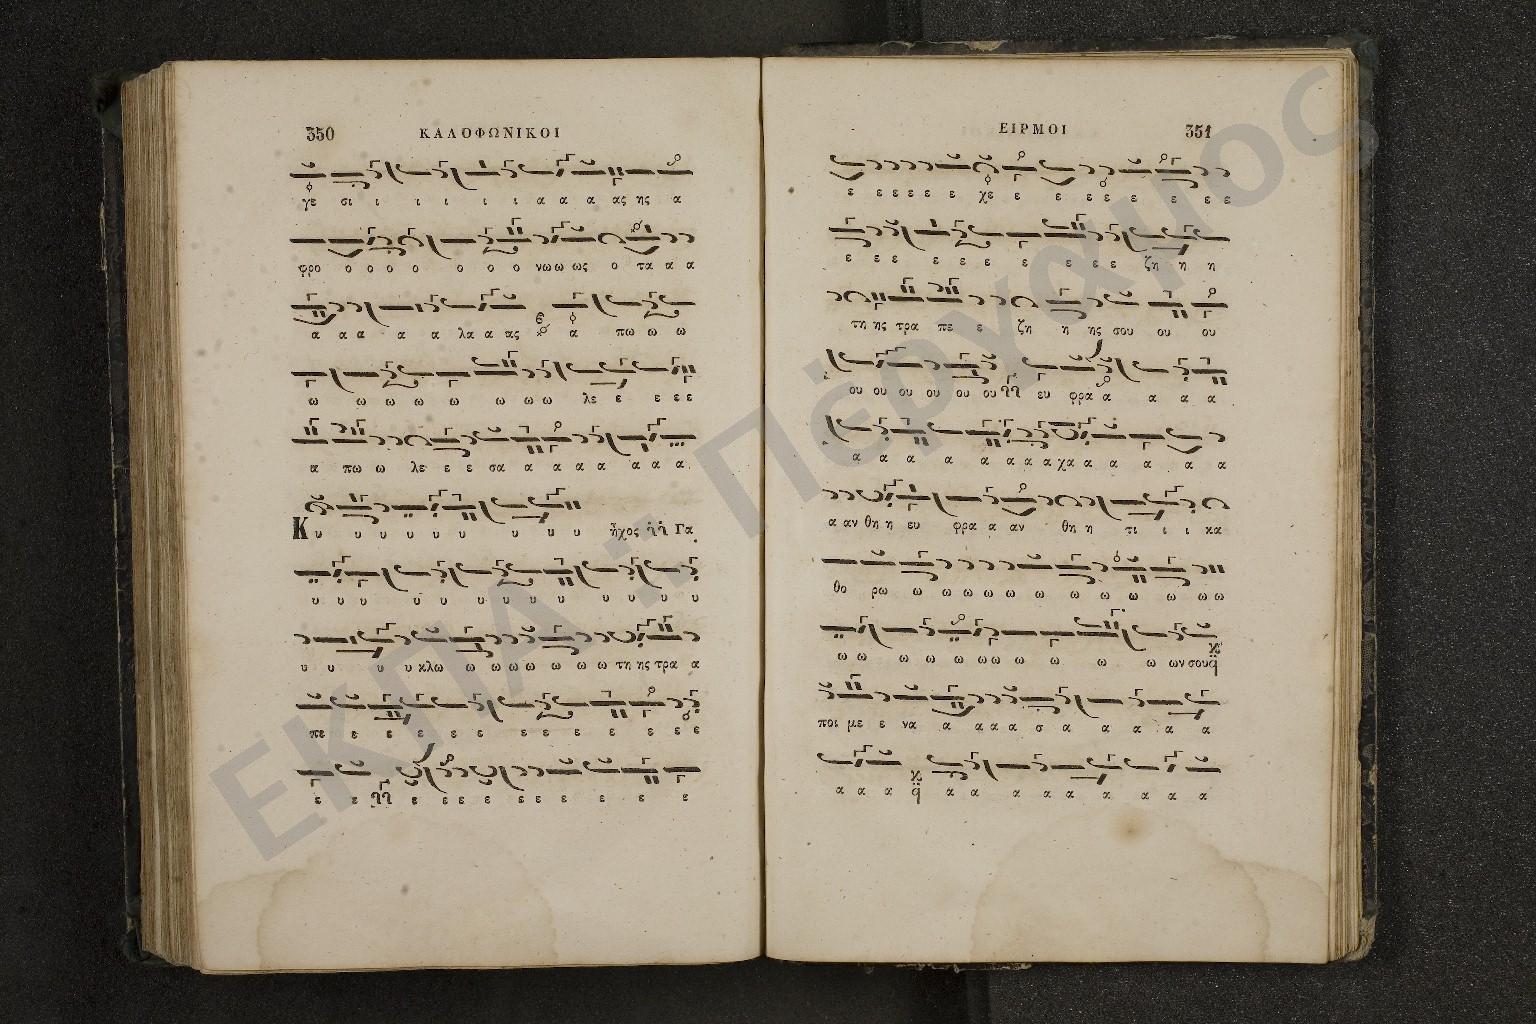 350 ΚΑΛΟΦΩΝΙΚΟΙ
γε σι ι ι ι ι ι α α α ας ης α
φρο ο ο ο ο ο ο ο νω ω ως ο τα α α
α α α α α λα α ας α πω ω ω
ω ω ω ω ω ω ω ω λε ε ε ε ε
α πω ω λε ε ε σα α α α α α α α
Κυ υ υ υ υ υ υ υ υ ἦχος Γα
υ υ υ υ υ υ υ υ υ υ υ υ
υ υ υ υ κλω ω ω ω ω ω ω ω τη ης τρα α
πε ε ε ε ε ε ε ε ε ε ε ε ε
ε ε ε ε ε ε ε ε ε ε ε ε
ΕΙΡΜΟΙ 351
ε ε ε ε ε ε χε ε ε ε ε ε ε ε ε
ε ε ε ε ε ε ε ε ε ε ζη η η
τη ης τρα πε ε ζη η ης σου ου ου
ου ου ου ου ου ου ευ φρα α α α α
α α α α α α α α χα α α α α α
α αν θη η ευ φρα α αν θη η τι ι ι κα
θο ρω ω ω ω ω ω ω ω ω ω ω ω
ω ω ω ω ω ω ω ω ω ω ω ων σου
ποι με ε να α α α α σ α α α α α
α α α α α α α α α α α
ΕΚΠΑ : Πέργαμος